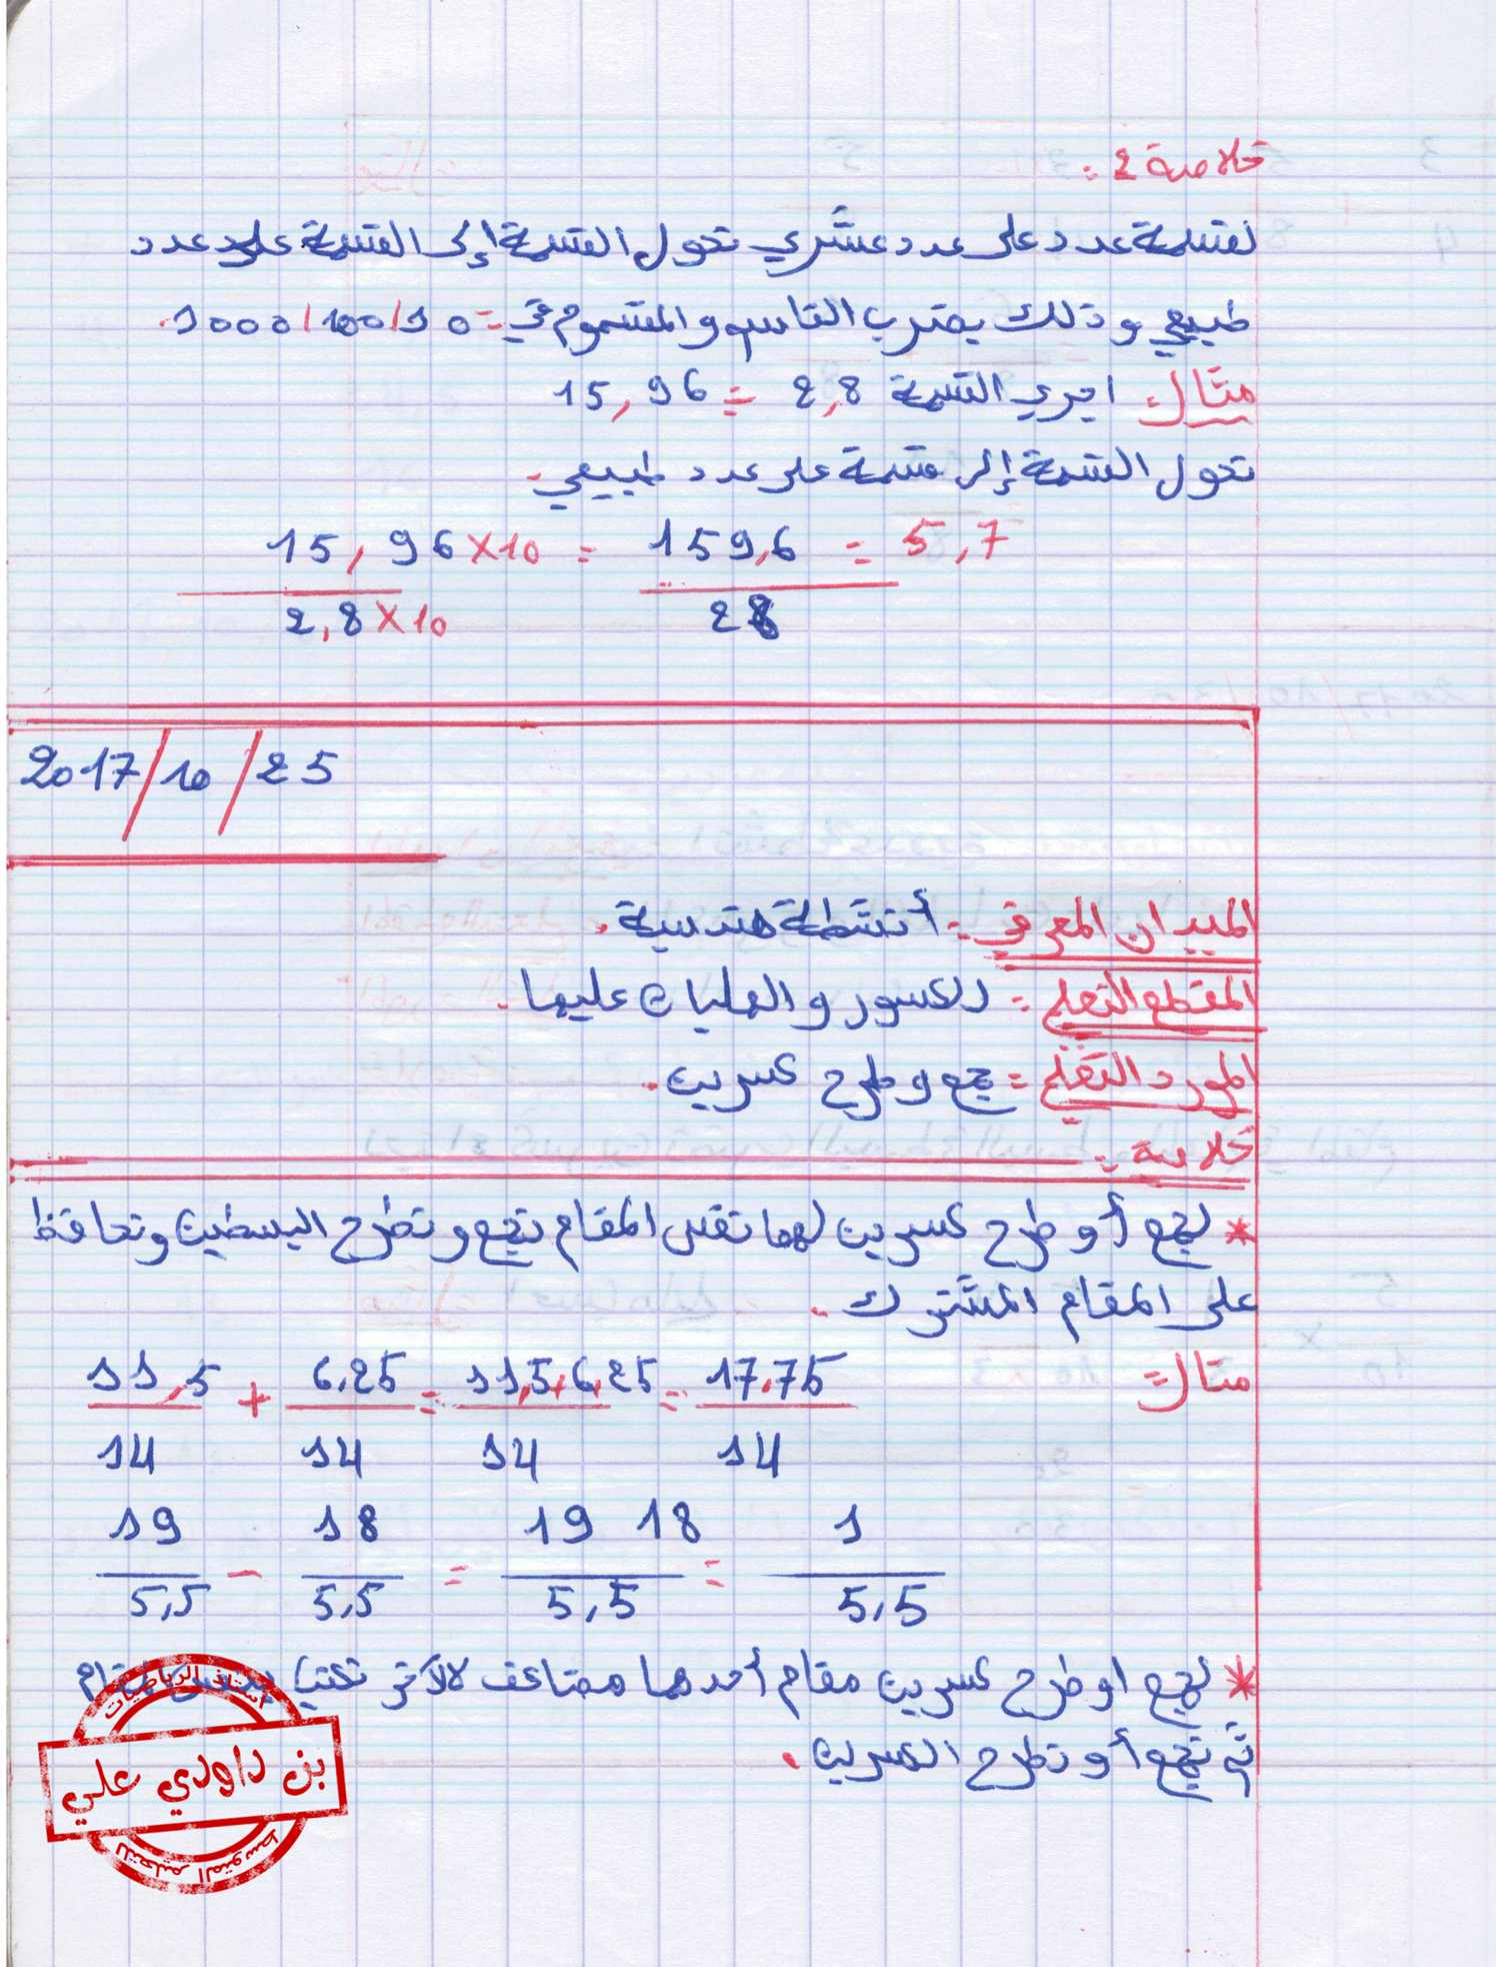 خلاصة 2:
لقسمة عدد على عدد عشري نحول القسمة إلى القسمة على عدد
طبيعي وذلك بضرب القاسم والمقسوم في: 10/100/1000.
مثال: اجري القسمة 2,8 ÷ 15,96
نحول القسمة إلى قسمة على عدد طبيعي.
15,96×10 / 2,8×10 = 159,6 / 28 = 5,7
2017/10/25
الميدان المعرفي: أنشطة هندسية.
المقطع التعلمي: الكسور والعمليات عليها.
المورد التعلمي: جمع وطرح كسرين.
خلاصة:
* لجمع أو طرح كسرين لهما نفس المقام نجمع ونطرح البسطين ونحافظ
على المقام المشترك.
مثال:
11,5/14 + 6,25/14 = 11,5+6,25/14 = 17,75/14
19/5,5 - 18/5,5 = 19 18/5,5 = 1/5,5
* لجمع او طرح كسرين مقام أحدهما مضاعف للآخر نكتبها بنفس المقام
ثم نجمع أو نطرح الكسرين.
أستاذ الرياضيات
بن داودي علي
للتعليم المتوسط